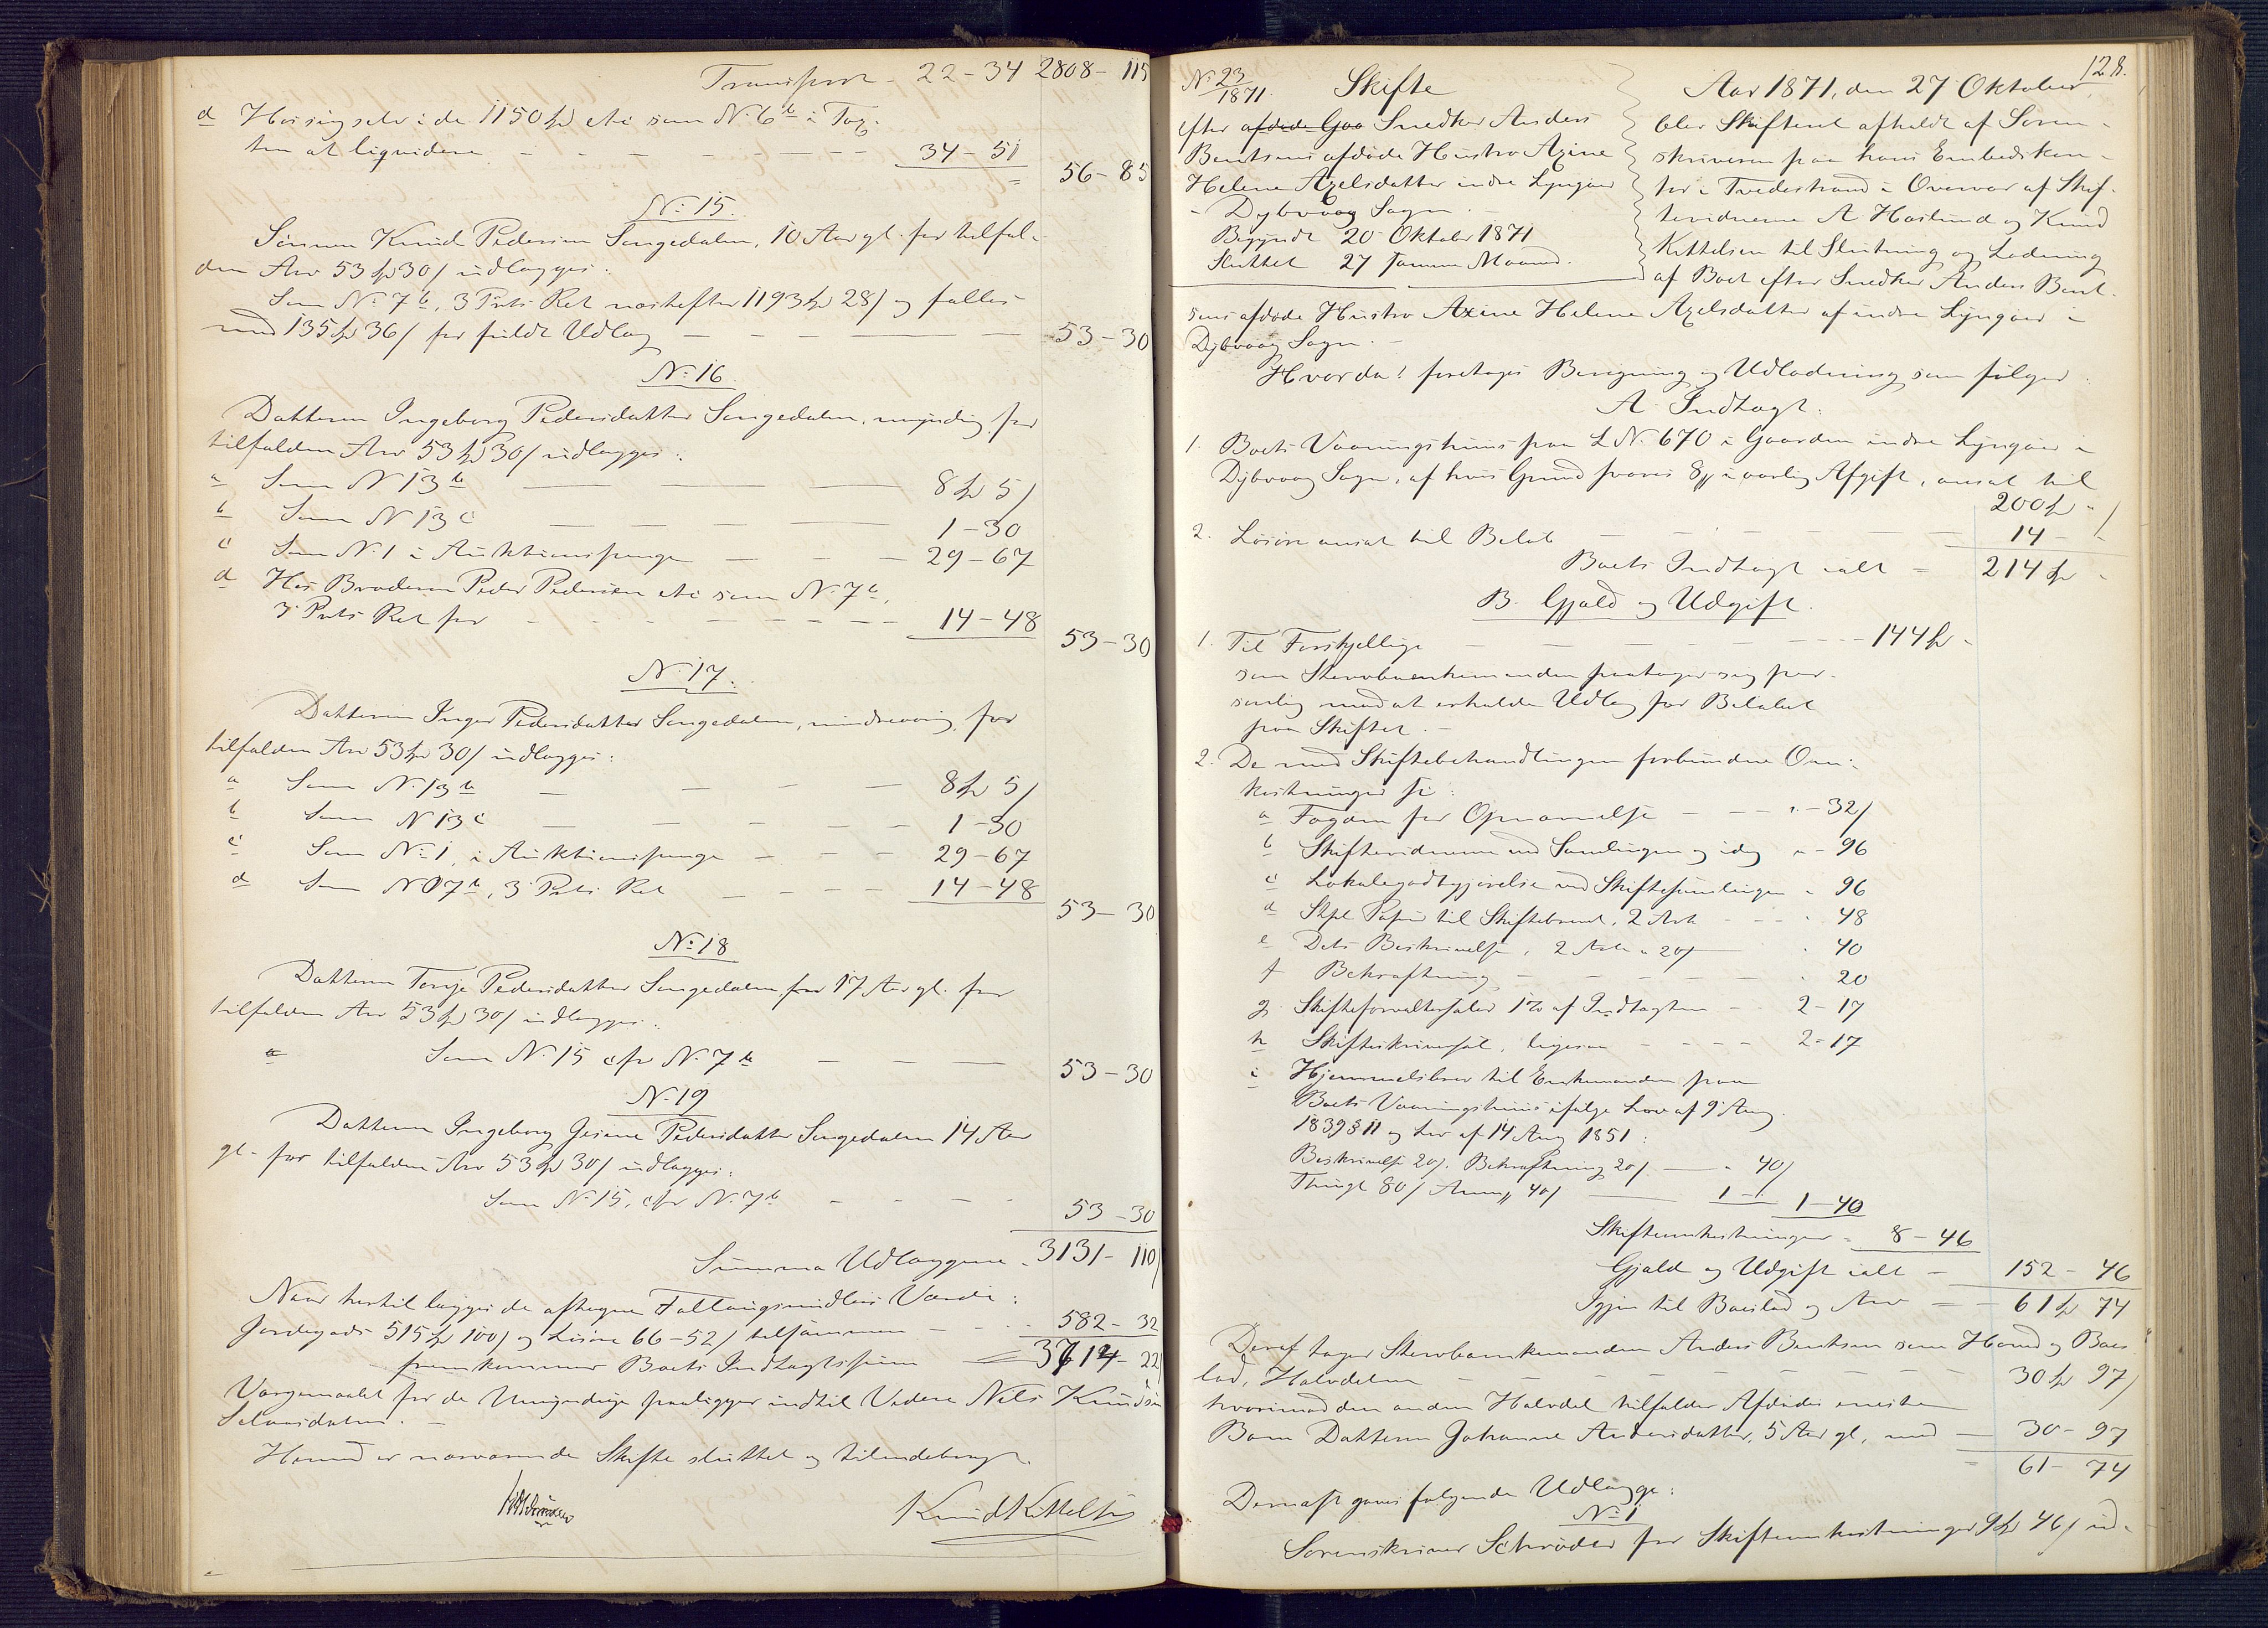 Transport - 22-34 2808-115
d Hos sig selv i de 1150 Spd etc som N: 6 b i Tax-
ten at liqvidere - - - 34-51
56-85
N: 15.
Sønnen Knud Pedersen Songedalen, 10 Aar gl. for tilfal-
den Arv 53 Spd 30 s udlægges:
Som N: 7 b, 3 Prts Ret næstefter 1193 Spd 28 s og fælles
med 135 Spd 36 s for fuldt Udlæg — 53-30
N: 16
Datteren Ingeborg Pedersdatter Songedalen, myndig, for
tilfalden Arv 53 Spd 30 s udlægges:
a Som N 13 b — 8 Spd 5 s
b Som N 13 c — 1-30
c Som N: 1 i Auktionspenge — 29-67
d Hos Broderen Peder Pedersen etc som N: 7 b,
3 Prts Ret for - - - 14-48
53-30
N: 17.
Datteren Inger Pedersdatter Songedalen, mindreaarig, for
tilfalden Arv 53 Spd 30 s udlægges:
a Som N: 13 b — 8 Spd 5 s
b Som N 13 c — 1-30
c Som N: 1, i Auktionspenge — 29-67
d Som N 7 b, 3 Prts Ret — 14-48
53-30
N: 18
Datteren Torje Pedersdatter Songedalen, 17 Aar gl. for
tilfalden Arv 53 Spd 30 s udlægges:
Som N: 15 cfr N: 7 b — 53-30
N: 19
Datteren Ingeborg Gesine Pedersdatter Songedalen 14 Aar
gl. for tilfalden Arv 53 Spd 30 s udlægges:
Som N: 15, cfr N: 7 b - - - 53-30
Summa Udlæggene - 3131-110 s
Naar hertil lægges de aftagne Værdi:
Jordegods 515 Spd 100 s og Løsøre 66-52 s tilsammen - 582-32
fremkommer Boets Indtægtssum 3714-22
Værgemaalet for de Umyndige paaligger indtil Videre Nils Knudsen
Selaasdalen. -
Hermed er nærværende Skifte sluttet og tilendebragt.
Knud Kittelsen
128.
N: 23/1871. Skifte
efter afdøde Gaa Snedker Anders
Bentsens afdøde Hustro Axine
Helene Axelsdatter indre Lyngøer
i Dybvaag Sogn.
Begyndt 20 Oktober 1871
Sluttet 27 samme Maaned.
Aar 1871, den 27 Oktober
blev Skifteret afholdt af Soren-
skriveren paa hans Embedskon-
tor i Tvedestrand i Overvær af Skif-
tevidnerne A Haslund og Knud
Kittelsen til Slutning og Lodning
af Boet efter Snedker Anders Bent-
sens afdøde Hustro Axine Helene Axelsdatter af indre Lyngøer i
Dybvaag Sogn. -
Hvorda: foretages Beregning og Udlodning som følger:
A. Indtægt:
1. Boets Vaaningshuus paa L N: 670 i Gaarden indre Lyngøer i
Dybvaag Sogn, af hvis Grund svares i aarlig Afgift, ansat til
200 Spd " s
2. Løsøre ansat til Beløb — 14 - "
Boets Indtægt ialt - 214 Spd "
B. Gjæld og Udgift.
1. Til Forskjellige — 144 Spd -
som Stervboenkemanden paatager sig per-
sonlig mod at erholde Udlæg for Beløbet
paa Skiftet. -
2. De med Skiftebehandlingen forbundne Om-
kostninger s:
a Fogden for Opnævnelse - - " - 32 s
b Skiftevidnerne ved Samlingen og idag " - 96
c Lokalegodtgjørelse ved Skiftesamlingen " 96
d Stpl Papir til Skiftebrevet, 2 Ark - - " 48
e Dets Beskrivelse, 2 Ark a 20 s — " 40
f Bekræftning — " 20
g Skifteforvaltersalær 1% af Indtægten - 2-17
h Skifteskriversal. ligesaa - - - 2-17
i Hjemmelsbrev til Enkemanden paa
Boets Vaaningshuus ifølge Lov af 9 Aug.
1839 § 11 og Lov af 14 Aug 1851:
Beskrivelse 20 s. Bekræftning 20 s. — " 40 s
Thingl 80 s Anm 40 s — 1 - " 1-40
Skifteomkostninger - 8-46
Gjæld og Udgift ialt - 152-46
Igjen til Boeslod og Arv — 61 Spd 74
Deraf tager Stervboenkemanden Anders Bentsen som Hoved og Boes-
lod, Halvdelen - - - 30 Spd 97 s
hvorimod den anden Halvdel tilfalder Afdødes eneste
Barn Datteren Johanne Andersdatter, 5 Aar gl, med — 30-97
61-74
Dernæst gjøres følgende Udlægge:
N: 1
Sorenskriver Schrøder for Skifteomkostninger 8 Spd 46 s ud-